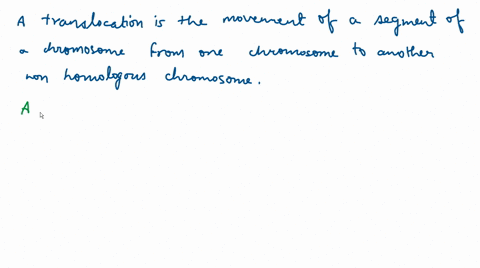 A translocation is the movement of a segment of
a chromosome from one chromosome to another
non homologous chromosome.
A